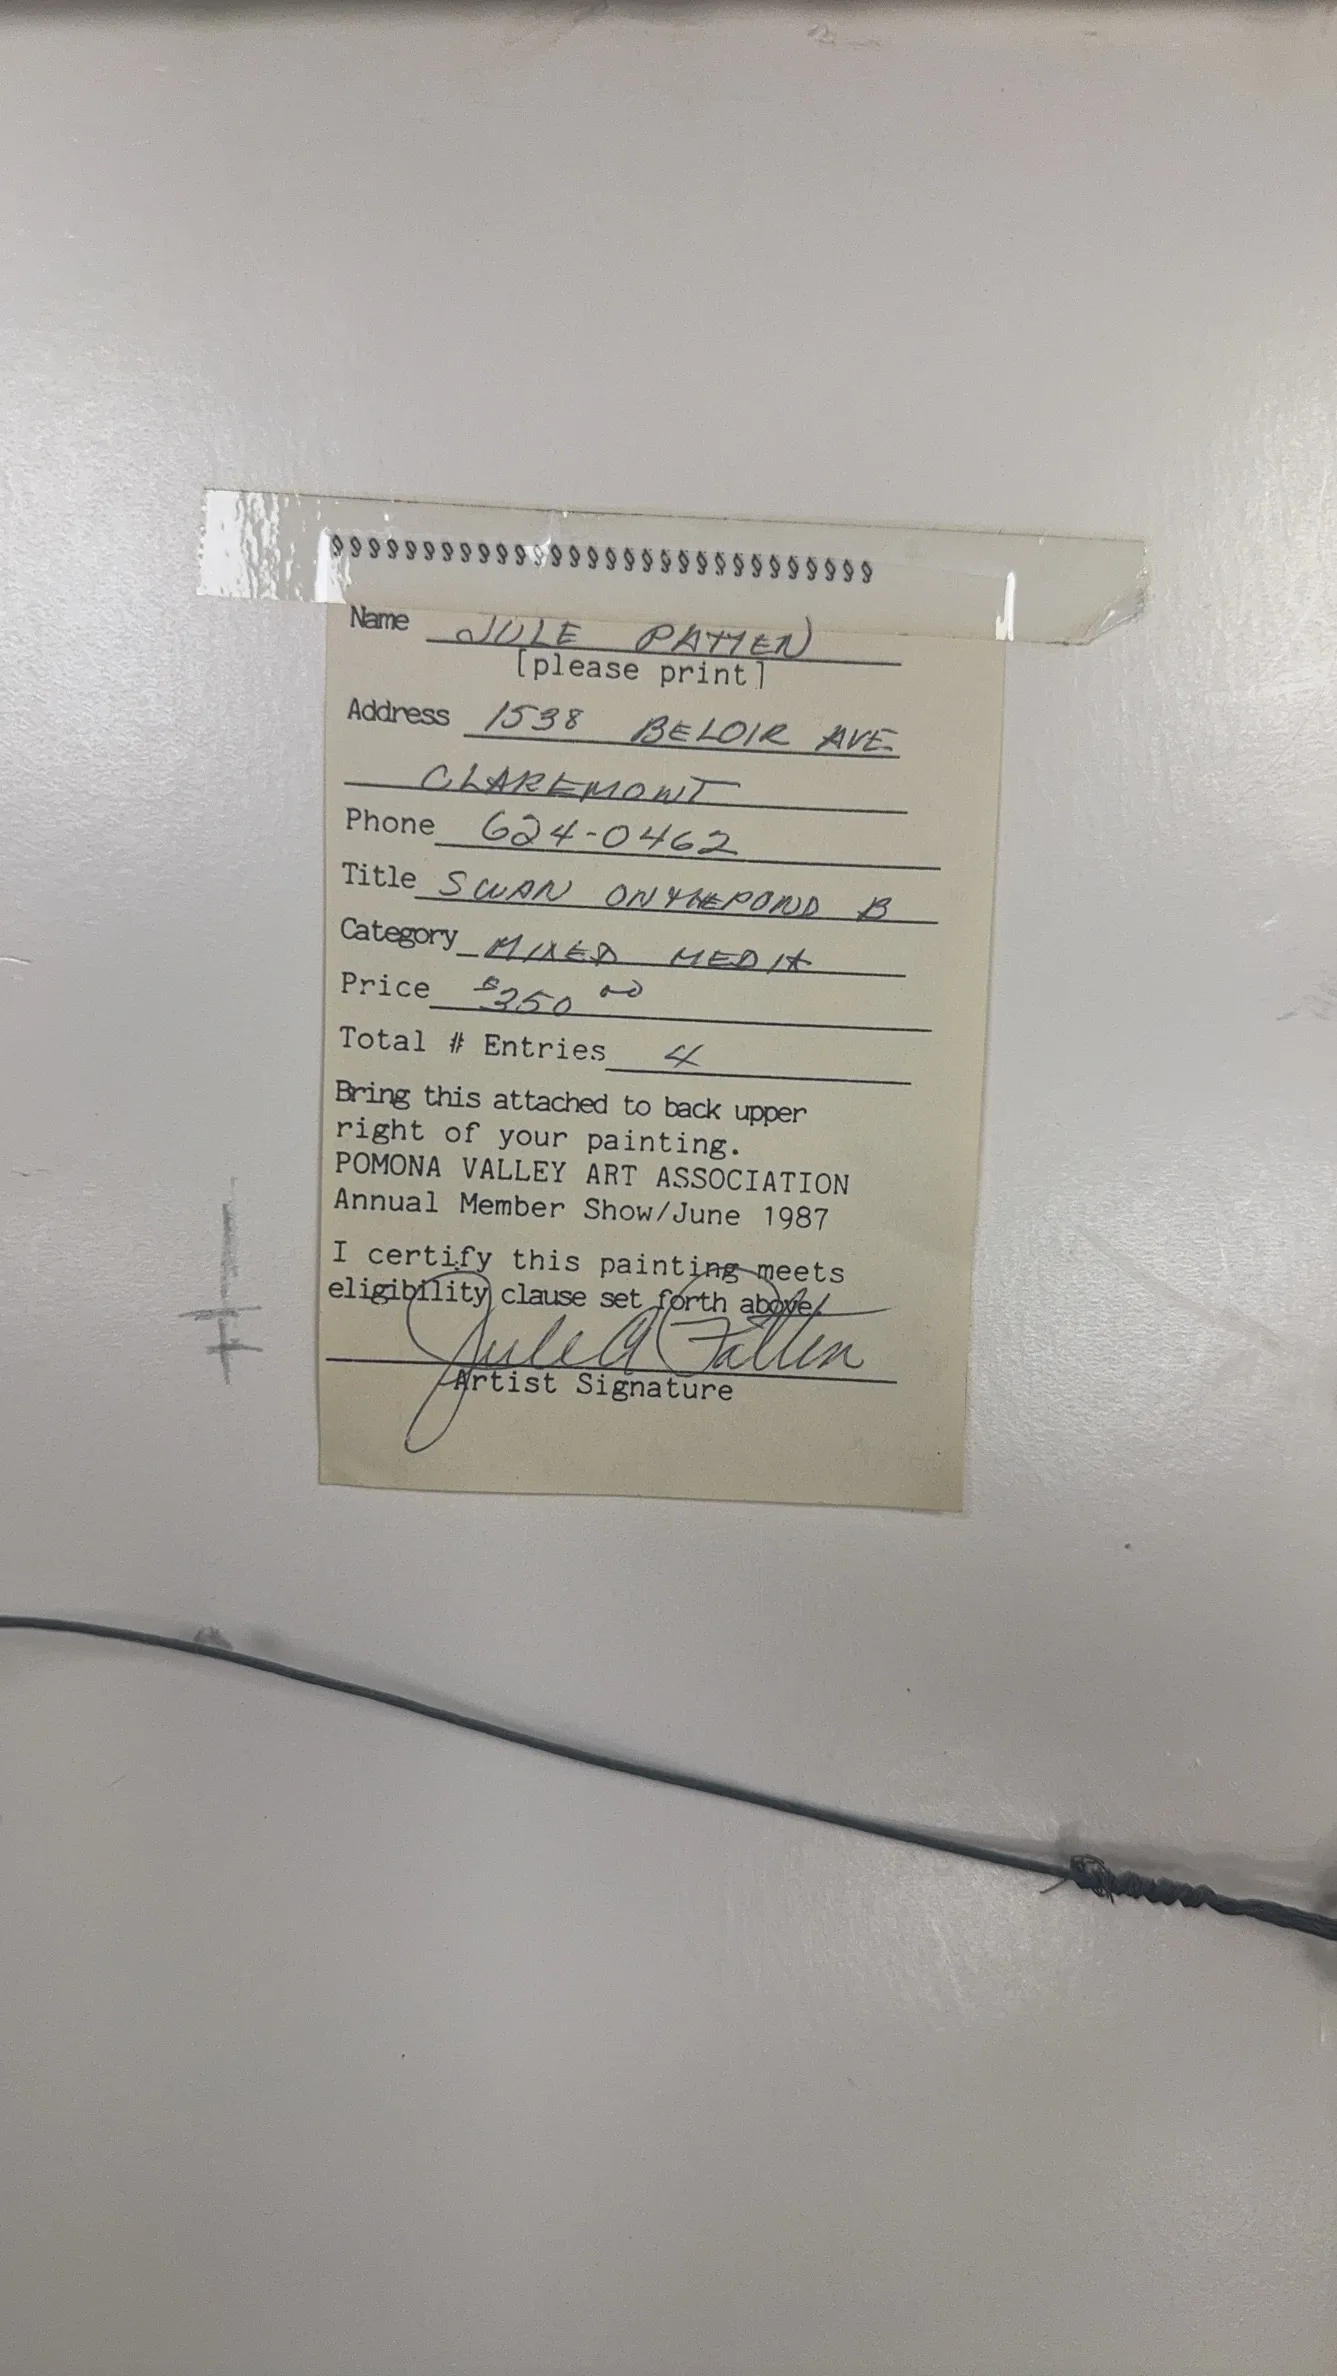 §§§§§§§§§§§§§§§§§§§§§§§§§§§§§§
Name JULE PATTEN
[please print]
Address 1538 BELOIR AVE.
CLAREMONT
Phone 624-0462
Title SWAN ON THE POND B
Category MIXED MEDIA
Price $350 00
Total # Entries 4
Bring this attached to back upper
right of your painting.
POMONA VALLEY ART ASSOCIATION
Annual Member Show/June 1987
I certify this painting meets
eligibility clause set forth above.
Jule A Patten
Artist Signature